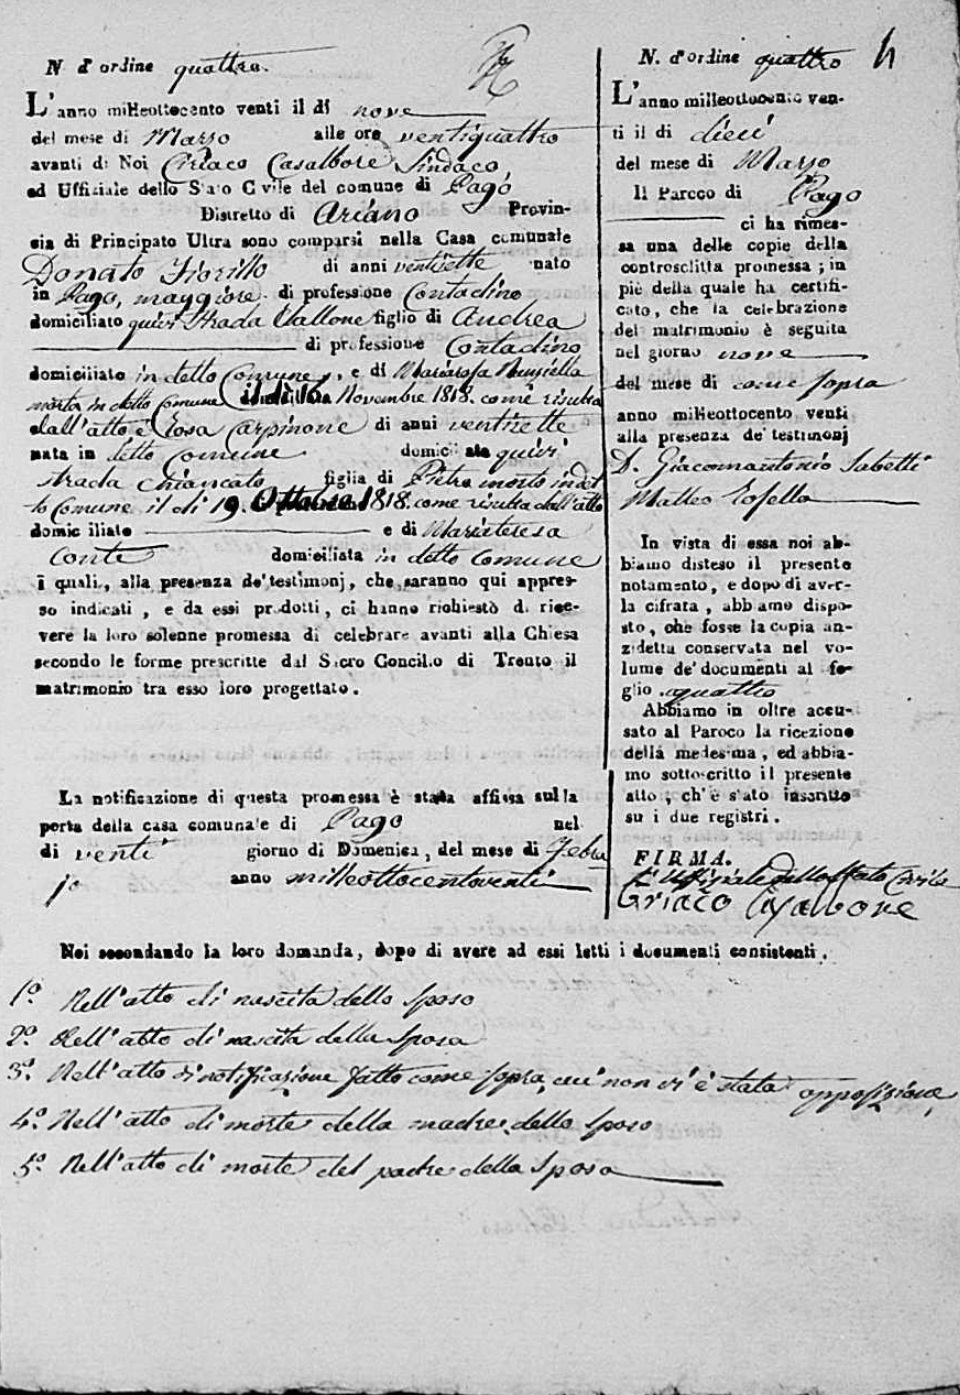 N. d'ordine quattro.
L'anno milleottocento venti il di nove
del mese di Marzo alle ore ventiquattro
avanti di Noi Ciriaco Casalbore Sindaco,
ed Uffiziale dello Stato Civile del comune di Pago
Distretto di Ariano Provin-
cia di Principato Ultra sono comparsi nella Casa comunale
Donato Fiorillo di anni ventisette nato
in Pago, maggiore di professione Contadino
domiciliato quivi Strada Vallone figlio di Andrea
di professione Contadino
domiciliato in detto Comune, e di Mariarosa
morta in detto Comune il di 16 Novembre 1818. come risulta
dall'atto e Rosa Carpinone di anni ventisette
nata in detto Comune domiciliata quivi
strada chiancato figlia di Pietro morto in det
to Comune il di 19. Ottobre 1818. come risulta dall'atto
domiciliato e di Mariateresa
Conte domiciliata in detto Comune
i quali, alla presenza de' testimonj, che saranno qui appres-
so indicati, e da essi prodotti, ci hanno richiesto di rice-
vere la loro solenne promessa di celebrare avanti alla Chiesa
secondo le forme prescritte dal Sacro Concilio di Trento il
matrimonio tra esso loro progettato.
La notificazione di questa promessa è stata affissa sulla
porta della casa comunale di Pago nel
di venti giorno di Domenica, del mese di Febra
jo anno milleottocentoventi
N. d'ordine quattro 4
L'anno milleottocento ven-
ti il di dieci
del mese di Marzo
Il Parcco di Pago
ci ha rimes-
sa una delle copie della
controscritta promessa; in
piè della quale ha certifi-
cato, che la celebrazione
del matrimonio è seguita
nel giorno nove
del mese di come sopra
anno milleottocento venti
alla presenza de' testimonj
D. Giacomantonio Sabetti
Matteo Zosella
In vista di essa noi ab-
biamo disteso il presente
notamento, e dopo di aver-
la cifrata, abbiamo dispo-
sto, che fosse la copia an-
zidetta conservata nel vo-
lume de' documenti al fo-
glio quattro
Abbiamo in oltre accu-
sato al Paroco la ricezione
della medesima, ed abbia-
mo sottoscritto il presente
atto, ch'è stato inscritto
su i due registri.
FIRMA.
L'Uffiziale dello Stato Civile
Criaco Casabore
Noi secondando la loro domanda, dopo di avere ad essi letti i documenti consistenti.
1.° Nell'atto di nascita dello Sposo
2.° Nell'atto di nascita della Sposa
3.° Nell'atto di notificazione fatto come sopra, cui non vi è stata opposizione,
4.° Nell'atto di morte della madre dello Sposo
5.° Nell'atto di morte del padre della Sposa